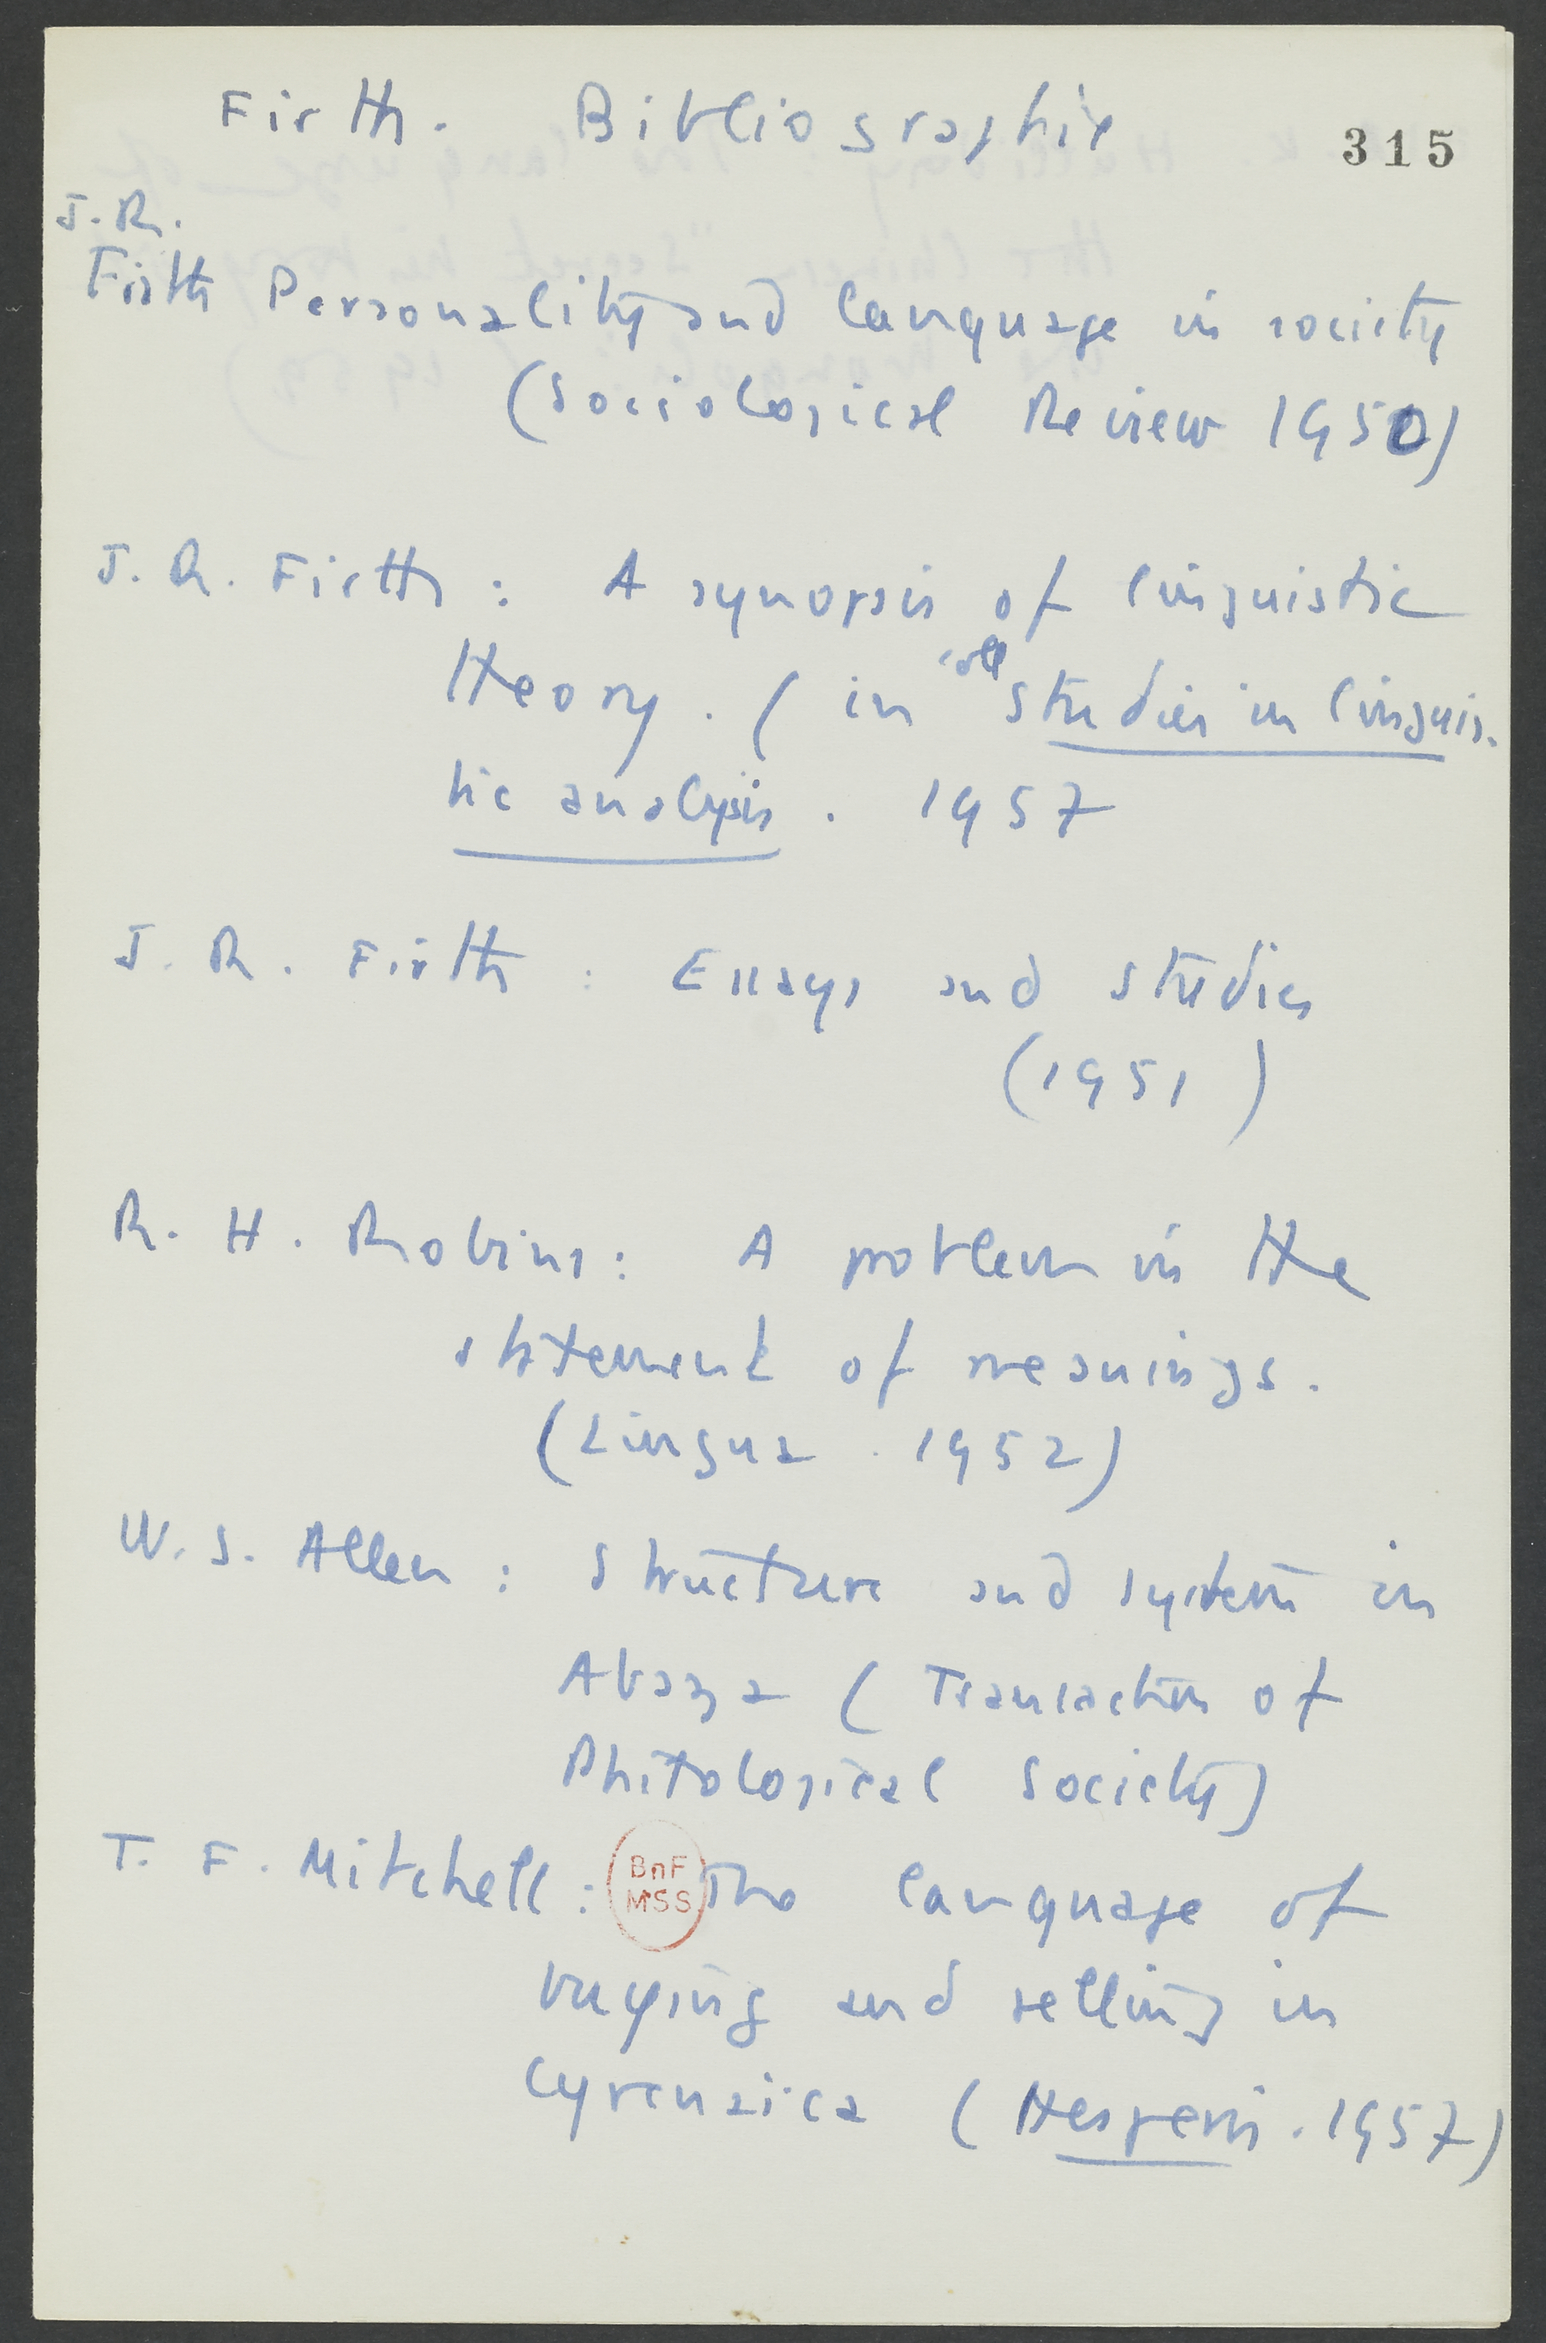 Firth. Bibliographie
315
J. R.
Firth Personality and language in society
(Sociological Review 1950)
J. R. Firth : A synopsis of linguistic
theory. ( in coll studies in linguis-
tic analysis . 1957
J. R. Firth : Essays and studies
(1951)
R. H. Robins : A problem in the
statement of meanings.
(Lingua . 1952)
W. S. Allen : Structure and system in
Abaza ( Transaction of
Philological Society)
T. F. Mitchell : The language of
BnF
MSS
buying and selling in
Cyrenaica ( Hesperis . 1957)